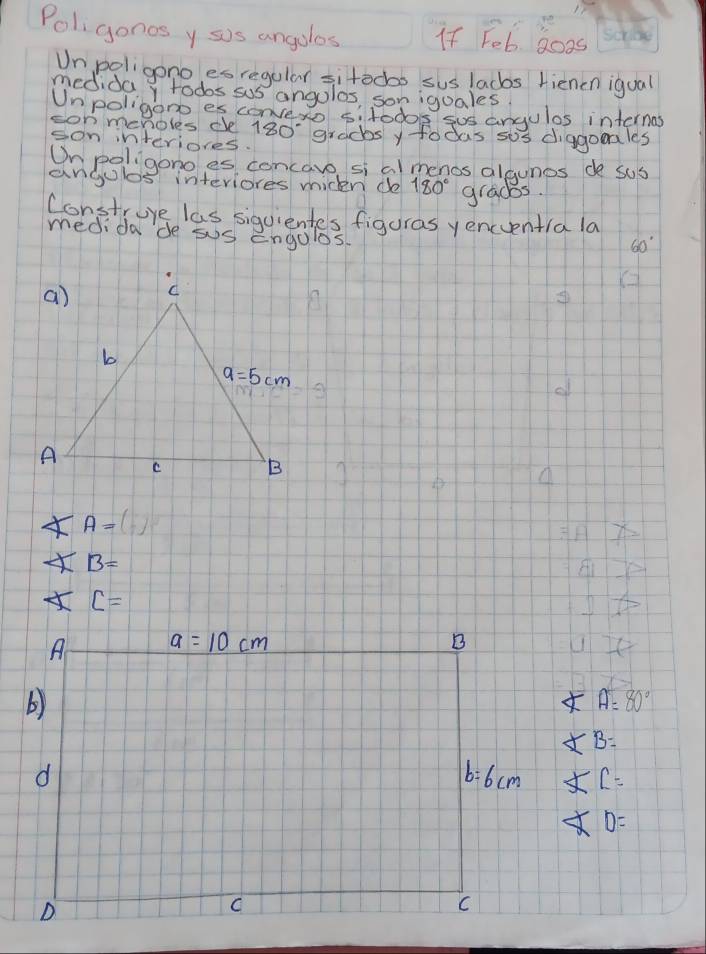 Poligonos y sus angulos
17 Feb 2025
Scribe
Un poligono es regular si todos sus lados tienen igual
medida y todos sus angulos, son iguales.
Un poligono es convexo si todos sus angulos internos
son menores de 180° grados y todas sus diagonales
son interiores.
Un poligono es concavo si al menos algunos de sus
angulos interiores miden de 180° grados.
Construye las siguientes figuras y encuentra la
medida de sus angulos.
60°
a)
C
b
a=5cm
A
c
B
∡ A=
∡ B=
∡ C=
a=10 cm
A
B
b)
∡ A=80°
∡ B=
d
b=6cm
∡ C=
∡ D=
D
C
C